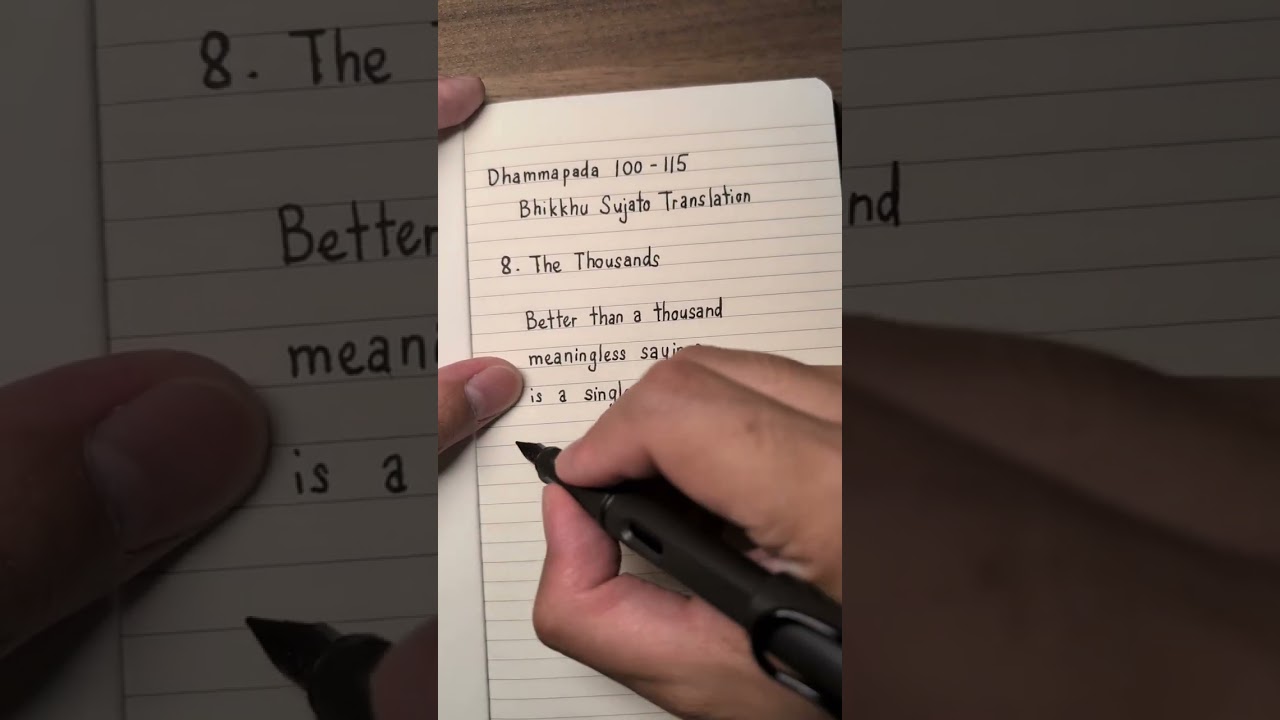 Dhammapada 100-115
Bhikkhu Sujato Translation
8. The Thousands
Better than a thousand
meaningless
is a